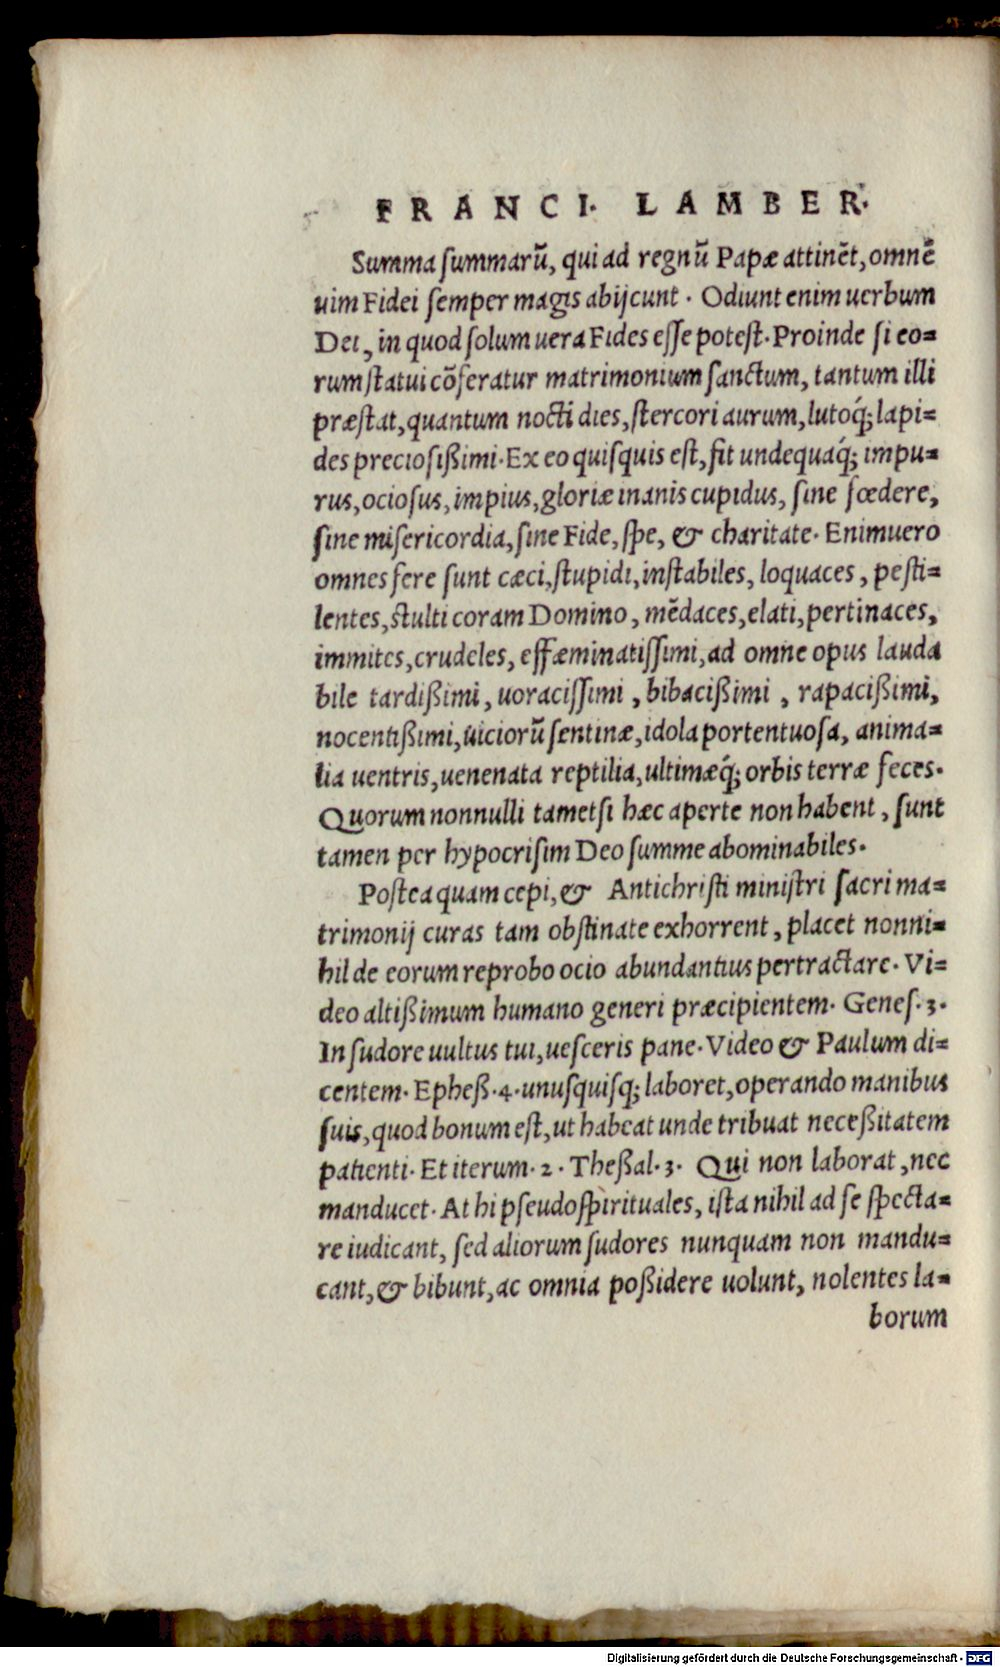 FRANCI. LAMBER.
Summa summarũ, qui ad regnũ Papæ attinẽt, omnẽ
uim Fidei semper magis abijcunt. Odiunt enim uerbum
Dei, in quod solum uera Fides esse potest. Proinde si eo-
rum statui cõferatur matrimonium sanctum, tantum illi
præstat, quantum nocti dies, stercori aurum, lutoq́; lapi-
des preciosißimi. Ex eo quisquis est, fit undequaq́; impu-
rus, ociosus, impius, gloriæ inanis cupidus, sine fœdere,
sine misericordia, sine Fide, spe, & charitate. Enimuero
omnes fere sunt cæci, stupidi, instabiles, loquaces, pesti-
lentes, stulti coram Domino, mẽdaces, elati, pertinaces,
immites, crudeles, effæminatissimi, ad omne opus lauda
bile tardißimi, uoracissimi, bibacißimi, rapacißimi,
nocentißimi, uiciorũ sentinæ, idola portentuosa, anima-
lia uentris, uenenata reptilia, ultimæq́; orbis terræ feces.
Quorum nonnulli tametsi hæc aperte non habent, sunt
tamen per hypocrisim Deo summe abominabiles.
Postea quam cepi, & Antichristi ministri sacri ma-
trimonij curas tam obstinate exhorrent, placet nonni-
hil de eorum reprobo ocio abundantius pertractare. Vi-
deo altißimum humano generi præcipientem. Genes. 3.
In sudore uultus tui, uesceris pane. Video & Paulum di-
centem. Epheß. 4. unusquisq; laboret, operando manibus
suis, quod bonum est, ut habeat unde tribuat neceßitatem
patienti. Et iterum. 2. Theßal. 3. Qui non laborat, nec
manducet. At hi pseudospirituales, ista nihil ad se specta-
re iudicant, sed aliorum sudores nunquam non mandu-
cant, & bibunt, ac omnia poßidere uolunt, nolentes la-
borum
Digitalisierung gefördert durch die Deutsche Forschungsgemeinschaft - DFG